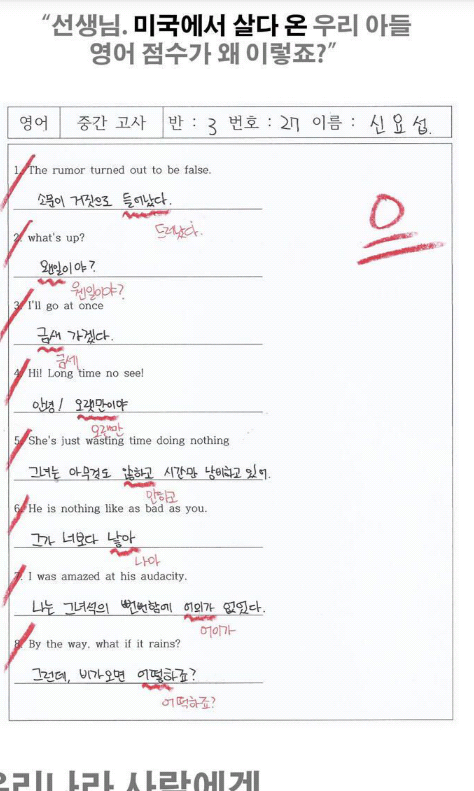 “선생님. 미국에서 살다 온 우리 아들
영어 점수가 왜 이렇죠?”
영어 중간 고사 반 : 3 번호 : 27 이름 : 신요섭.
0
1. The rumor turned out to be false.
소문이 거짓으로 들어났다.
드러났다.
2. what's up?
왠일이야?
웬일이야?
3. I'll go at once
금새 가겠다.
금세
4. Hi! Long time no see!
안녕! 오랫만이야
오랜만
5. She's just wasting time doing nothing
그녀는 아무것도 않하고 시간만 낭비하고 있어.
안하고
6. He is nothing like as bad as you.
그가 너보다 낳아
나아
7. I was amazed at his audacity.
나는 그녀석의 뻔뻔함에 어의가 없었다.
어이가
8. By the way, what if it rains?
그런데, 비가오면 어떻하죠?
어떡하죠?
우리나라 사람에게